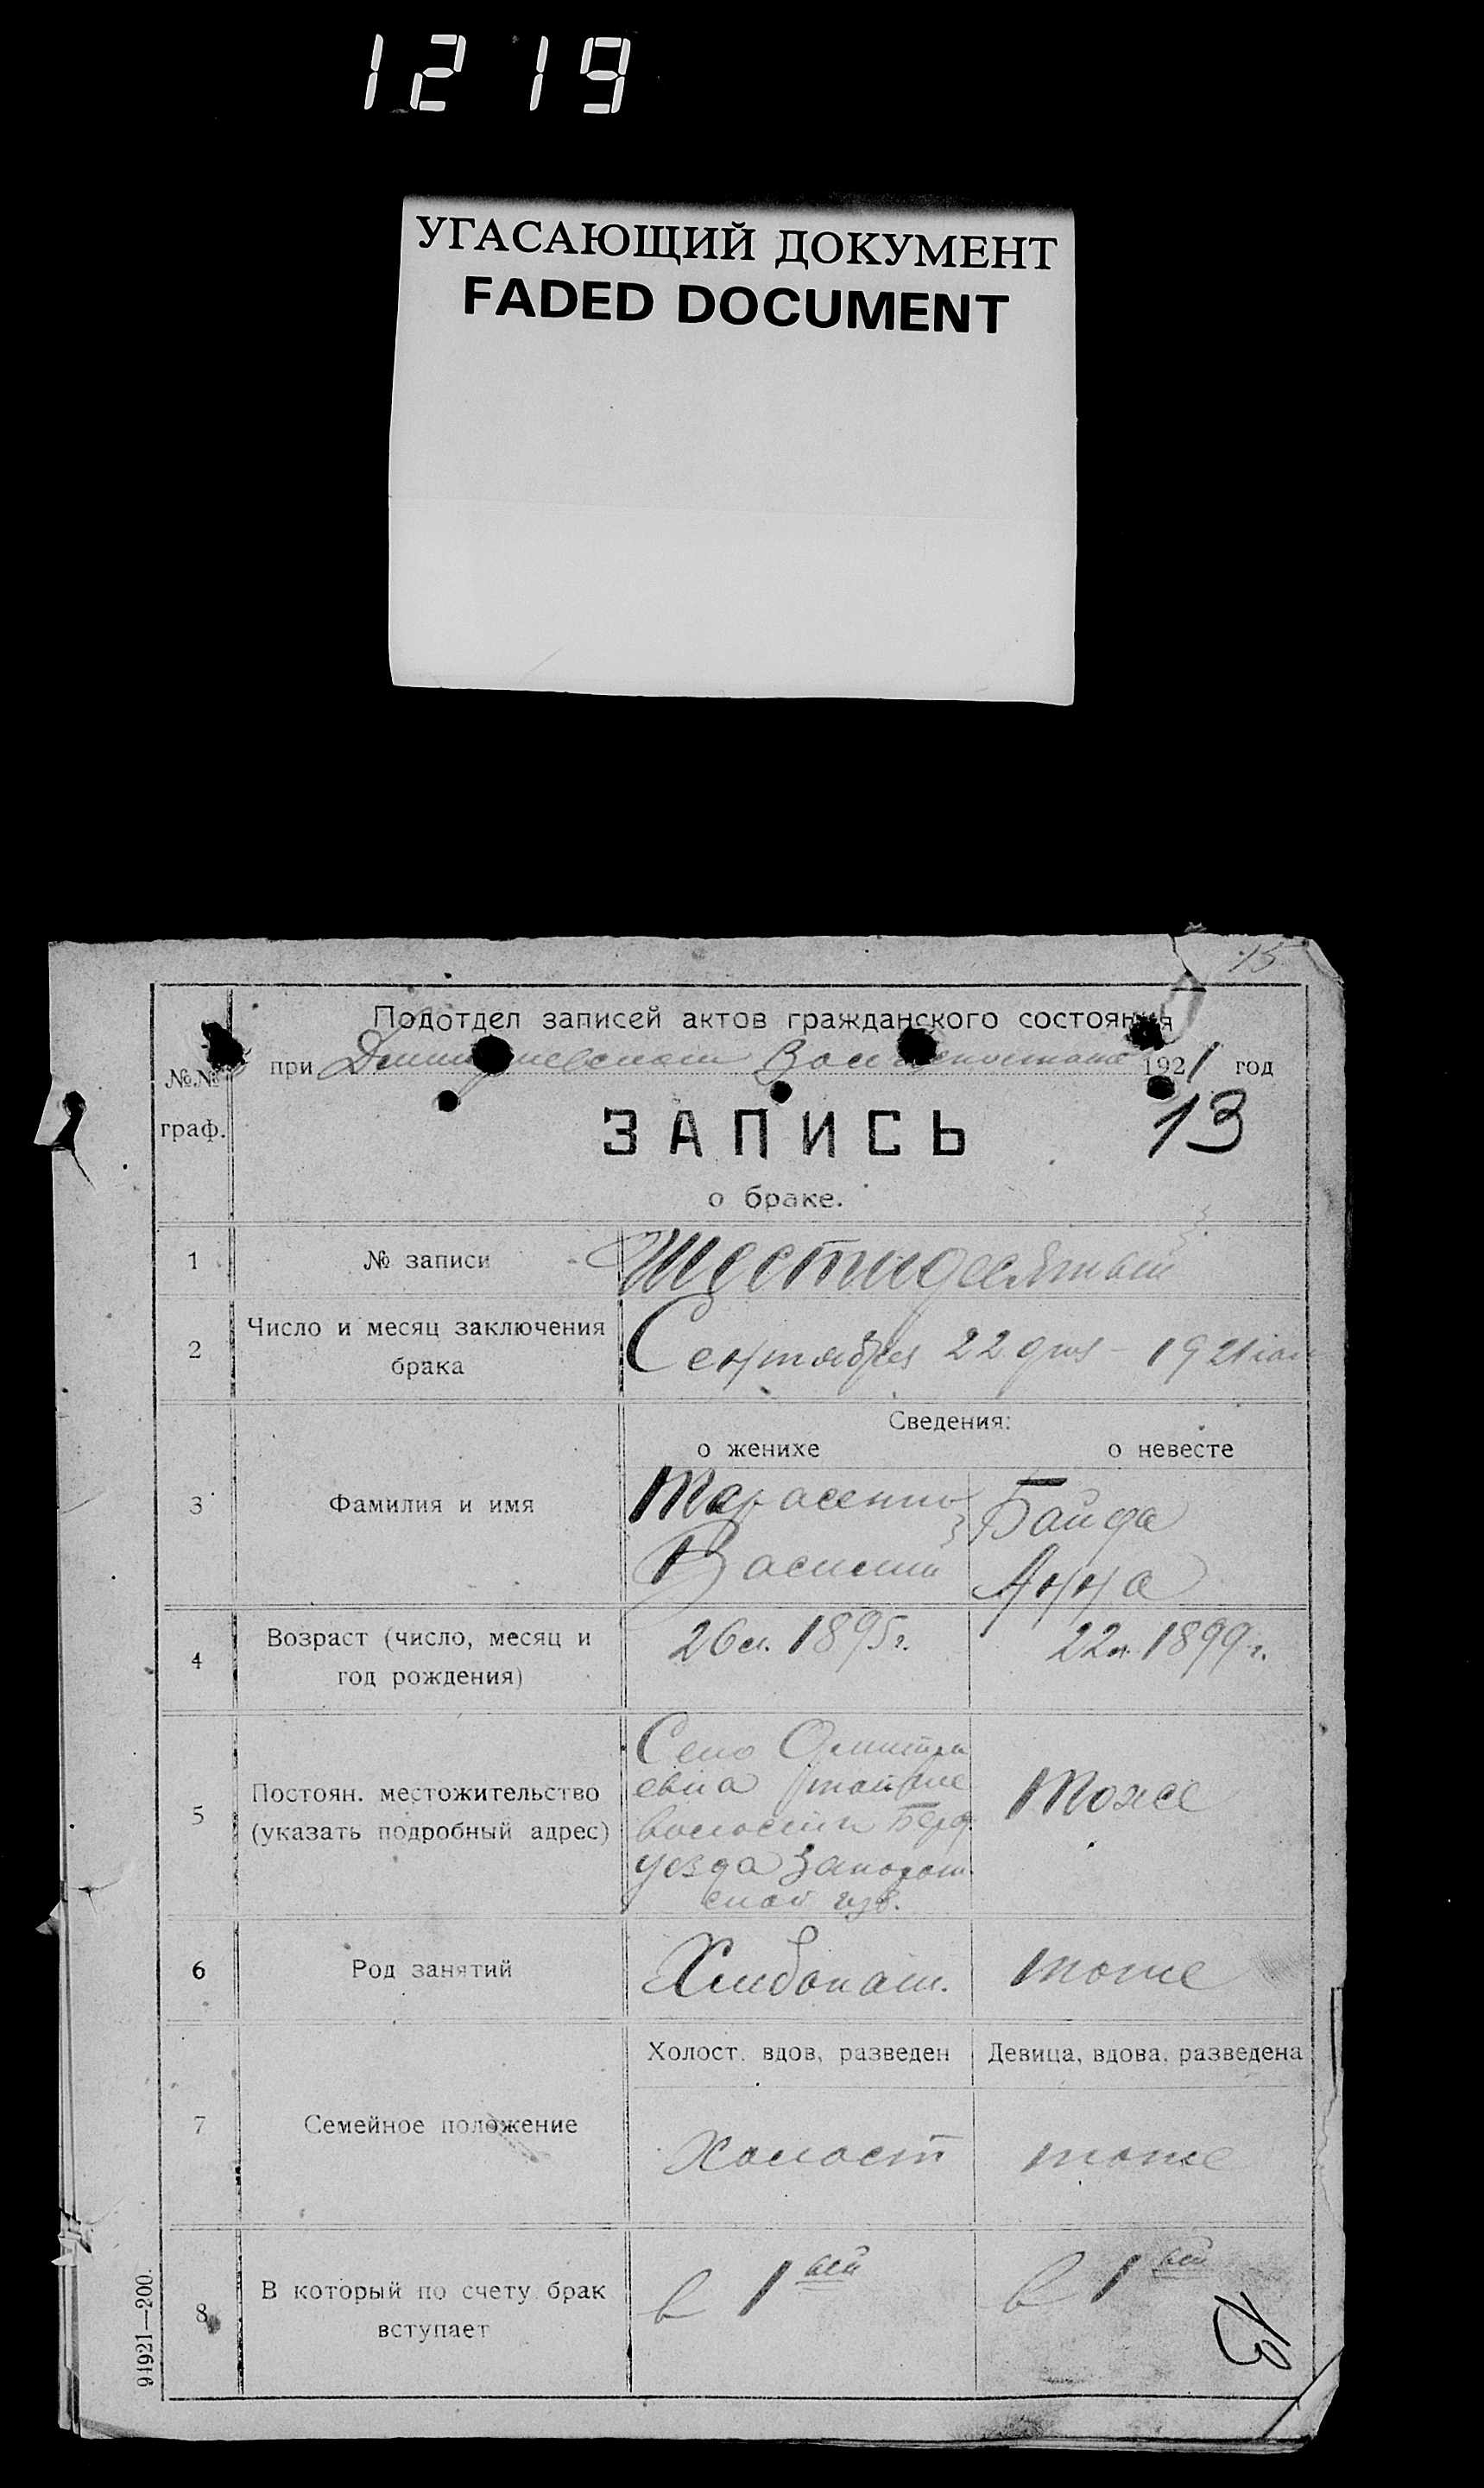 1219
УГАСАЮЩИЙ ДОКУМЕНТ
FADED DOCUMENT
15
Подотдел записей актов гражданского состояния
при 1921 год
№№ граф.
13
ЗАПИСЬ
о браке.
1 № записи Шестидесятый
2 Число и месяц заключения брака Сентября 22 дня - 1921
Сведения:
о женихе о невесте
3 Фамилия и имя Тарасенко Байда
Василий Анна
4 Возраст (число, месяц и год рождения) 26 л. 1895 г. 22 л. 1899 г.
5 Постоян. местожительство (указать подробный адрес)
Село Дмитри
евка
волости Берд. Тоже
уезда Запорож
ской губ.
6 Род занятий Хлибопаш. тоже
Холост, вдов, разведен Девица, вдова, разведена
7 Семейное положение Холост тоже
8 В который по счету брак вступает в 1 ый в 1 ый
91921—200.